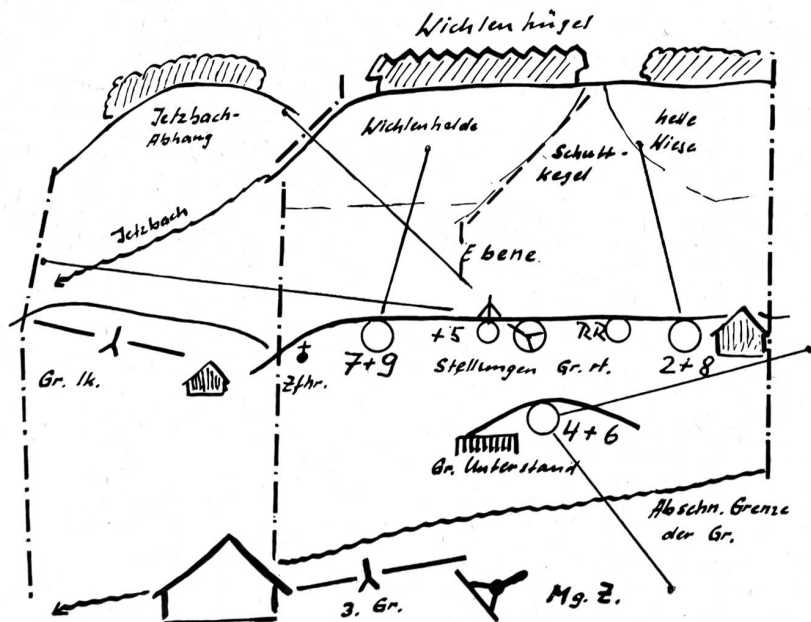 Wichlenhügel
Jetzbach-
Abhang
Wichlenhalde
helle
Wiese
Schutt-
kegel
Jetzbach
Ebene
Gr. lk.
Zfhr.
7+9
+5
Stellungen Gr. rt.
RR
2+8
4+6
Gr. Unterstand
Abschn. Grenze
der Gr.
3. Gr.
Mg. Z.